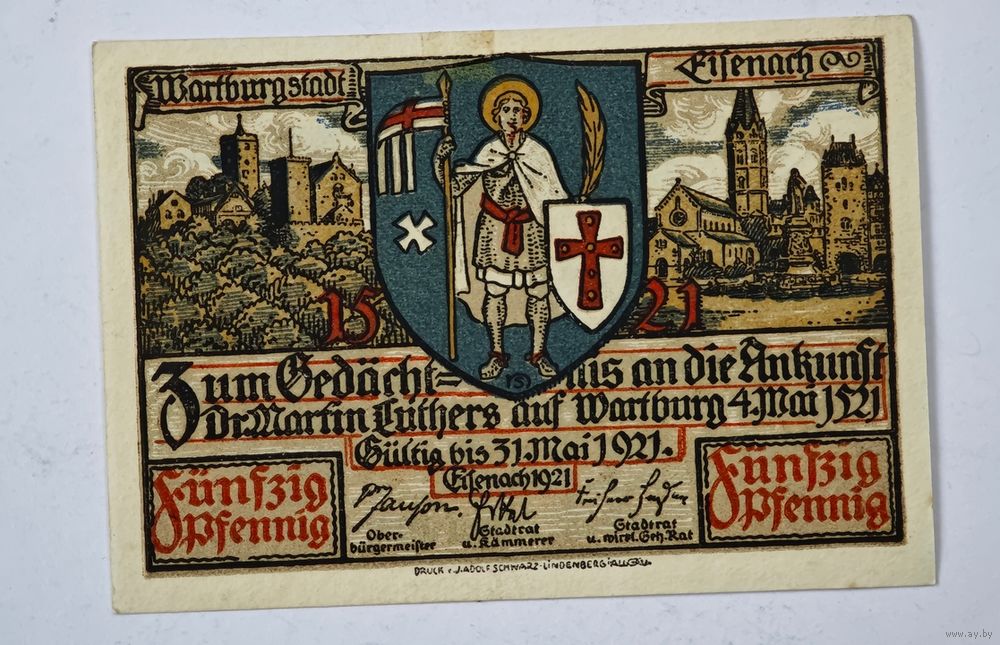 Wartburgstadt
Eisenach
1521
Zum Gedächt=nis an die Ankunft
Dr. Martin Luthers auf Wartburg 4. Mai 1521
Gültig bis 31. Mai 1921.
Eisenach 1921
Fünfzig
Pfennig
Ober-
bürgermeister
Stadtrat
u. Kämmerer
Stadtrat
u. wirkl. Geh. Rat
Fünfzig
Pfennig
DRUCK v. J. ADOLF SCHWARZ-LINDENBERG i/ALLGÄU
www.ay.by